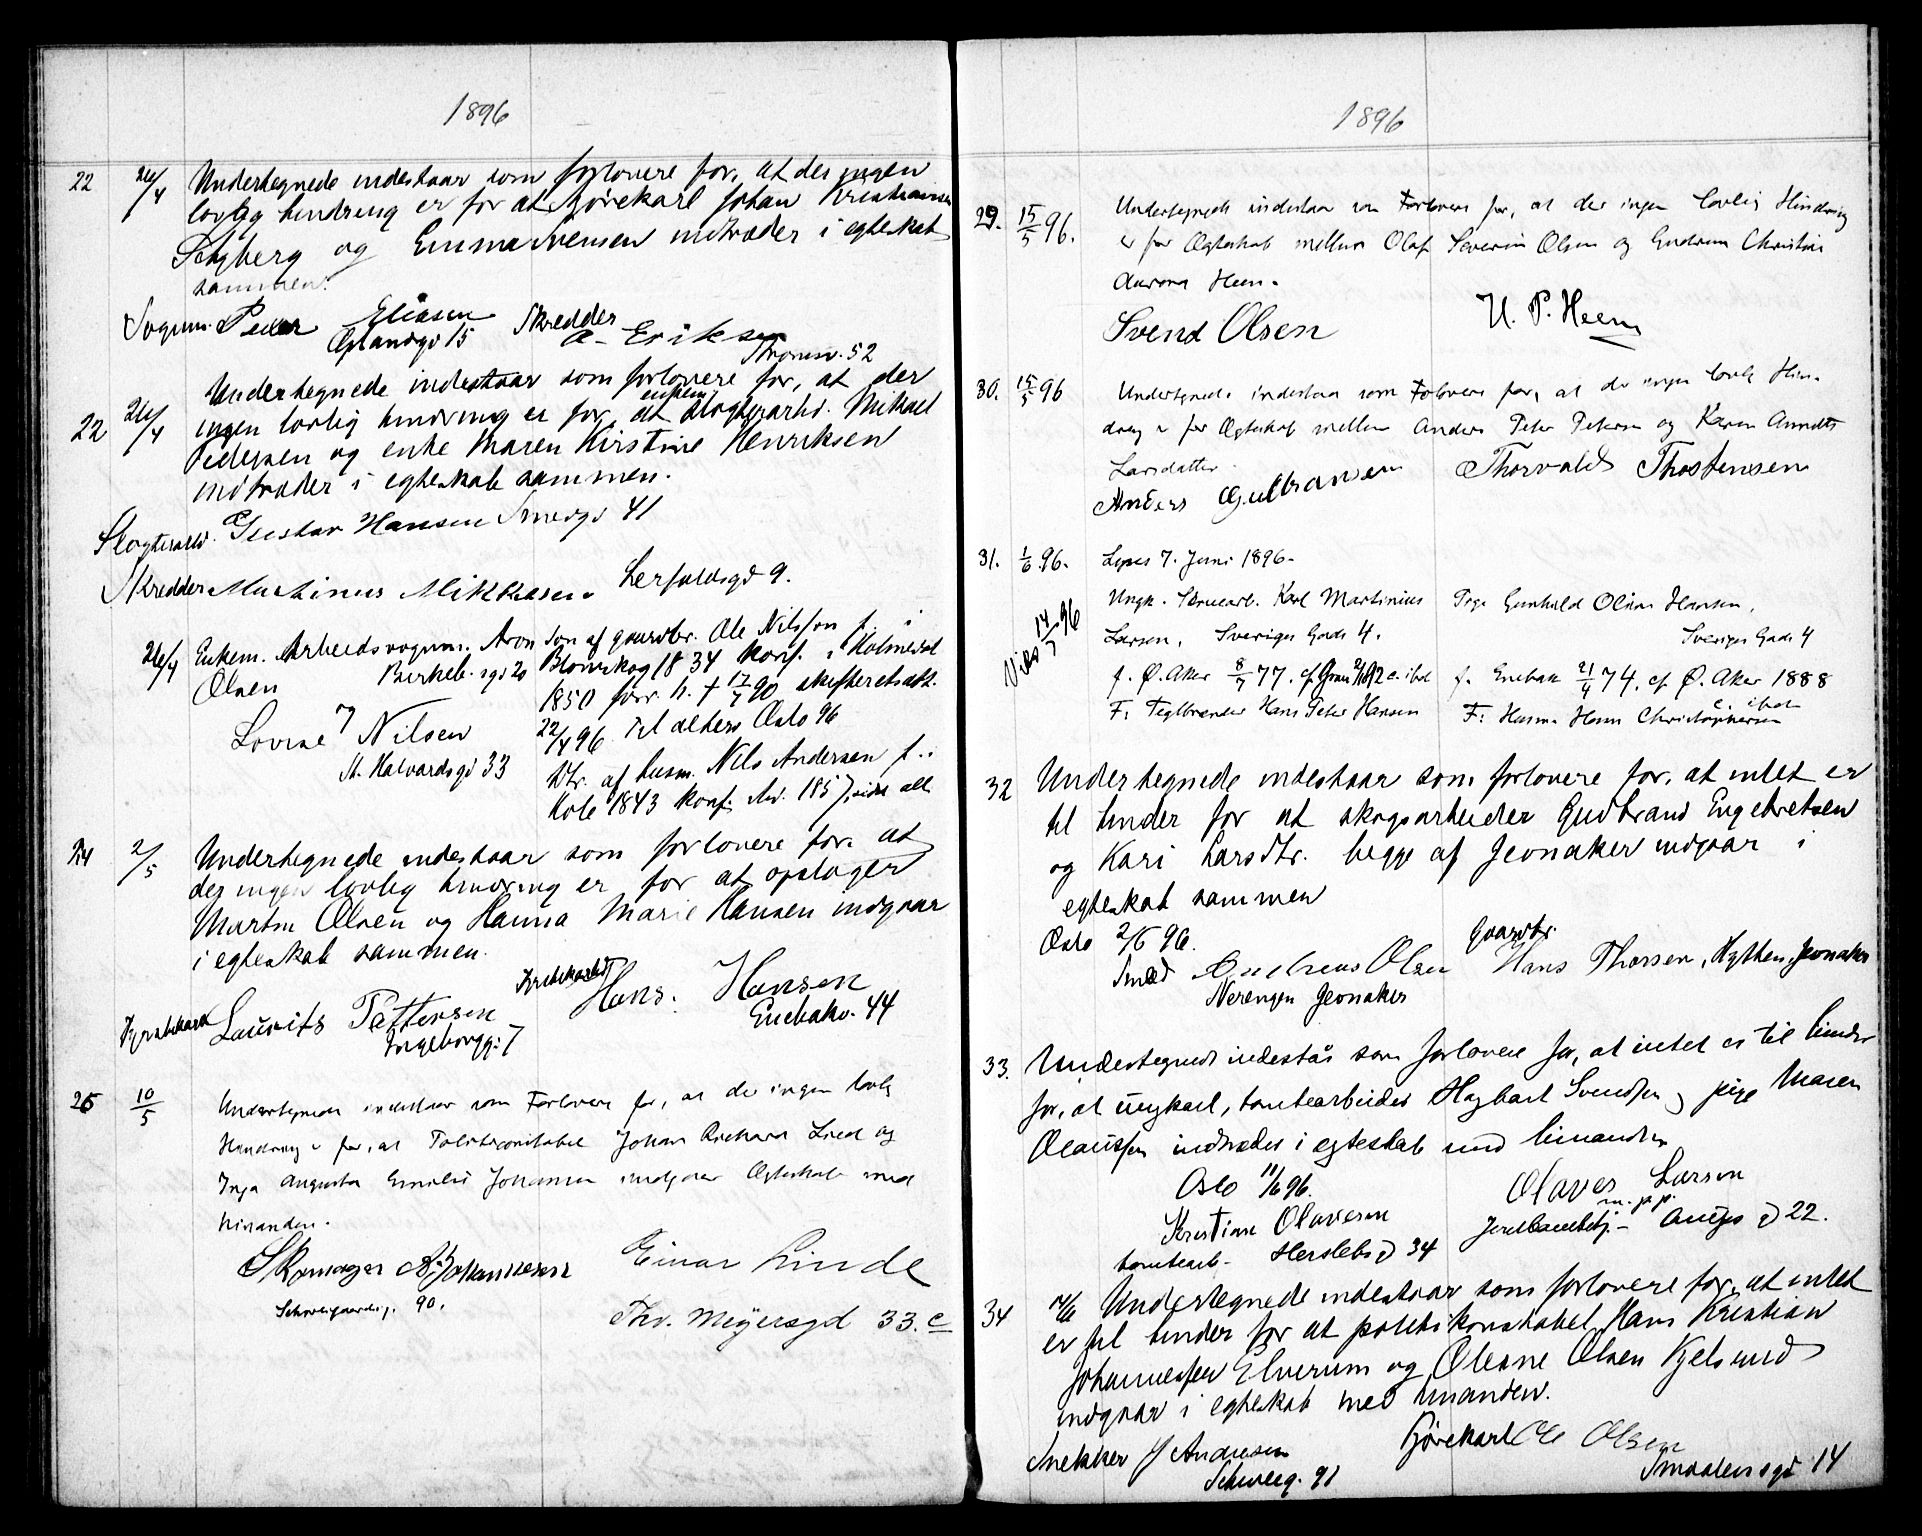 1896
22 26/4 Undertegnede indestaar som forlovere for, at der ingen
lovlig hindring er for at kjørekarl Johan Kristiansen
Schjberg og Emma Svensen indtræder i egteskab
sammen.
Vognm. Peder Eliasen Skredder A. Eriksen
Øglandsgd 15 Tromsø. 52
Undertegnede indestaar som forlovere for, at der
22 26/4 ingen lovlig hindring er for at enkem. slagterarbd. Mikael
Pedersen og enke Maren Kirstine Henriksen
indtræder i egteskab sammen.
Slagterarbd. Gustav Hansen Smedgd 41
Skredder Martinus Mikkelsen. Herfoldsgd 9.
26/4 Enkem. Arbeidsvognm. Aron Søn af gaardbr. Ole Nilsson f. i
Olsen Birkeb.sgd 20 Blomskog 1834 konf. i Holmedal
1850 forr. h. + 17/7 90 skifteretsatt.
Lovise Nilsen 22/4 96 til alters Oslo 96
St. Halvardsgd 33 Dtr. af husm. Nils Andersen f. i
Hole 1843 konf. 1857,
24 2/5 Undertegnede indestaar som forlovere for at
der ingen lovlig hindring er for at opslager
Martin Olsen og Hanna Marie Hansen indgaar
i egteskab sammen.
Laurits Pettersen Hans. Hansen
Ingeborgg: 7 Enebakv. 44
25 10/5 Undertegnede indestaar som Forlovere for, at der ingen lovlig
Hindring er for, at Politiconstabel Johan Rickard Lied og
Inga Augusta Emilie Johansen indgaar Egteskab med
hinanden.
Skomager A. Johannesen Einar Linde
Schweigaardsg. 90. Thv. Meÿersgd 33.c

1896
29. 15/5 96. Undertegnede indestaar som Forlovere for, at der ingen lovlig Hindring
er for Ægteskab mellem Olaf Severin Olsen og Gudrun Christine
Aurora Heen.
Svend Olsen H. P. Heen
30. 15/5 96 Undertegnede indestaar som Forlovere for, at der ingen lovlig Hin-
dring er for Ægteskab mellem Anders Peter Petersen og Karen Annette
Larsdatter.
Anders Gulbransen Thorvald Thostensen
31. 1/6 96. Lyses 7. Juni 1896.
Viet 14/7 96 Ungk. Karl Martinius Pige Gunhild Oline Hansen,
Larsen, Sveriges Gade 4. Sveriges Gade 4
f. Ø. Aker 8/7 77. f. Enebak 21/4 74. cf. Ø. Aker 1888
F: Teglbrender Hans Peter Hansen F: Husm. Hans Christophersen
32 Undertegnede indestaar som forlovere for, at intet er
til hinder for at skogsarbeider Gudbrand Engebretsen
og Kari Larsdtr. begge af Jevnaker indgaar i
egteskab sammen
Oslo 2/6 96. Gaardbr.
Smed Andreas Olsen Hans Thorsen, Jevnaker
Nerengen Jevnaker
33. Undertegnede indestår som forlovere for, at intet er til hinder
for, at ungkarl, tomtearbeider Hagbart Svendsen og pige Maren
Olaussen indtræder i egteskab med hinanden
Oslo 11/6 96. Olaves Larsen
m. p. p.
Kristian Olavesen 22.
tomtearb. Herslebsgd 34
34 14/6 Undertegnede indestaar som forlovere for, at intet
er til hinder for at politikonstabel Hans Kristian
Johannessen Elverum og Oleane Olsen Kjelsrud
indgaar i egteskab med hinanden.
Snekker J Andresen Kjørekarl Ole Olsen
Schweig. 91 Smaalensgd 14